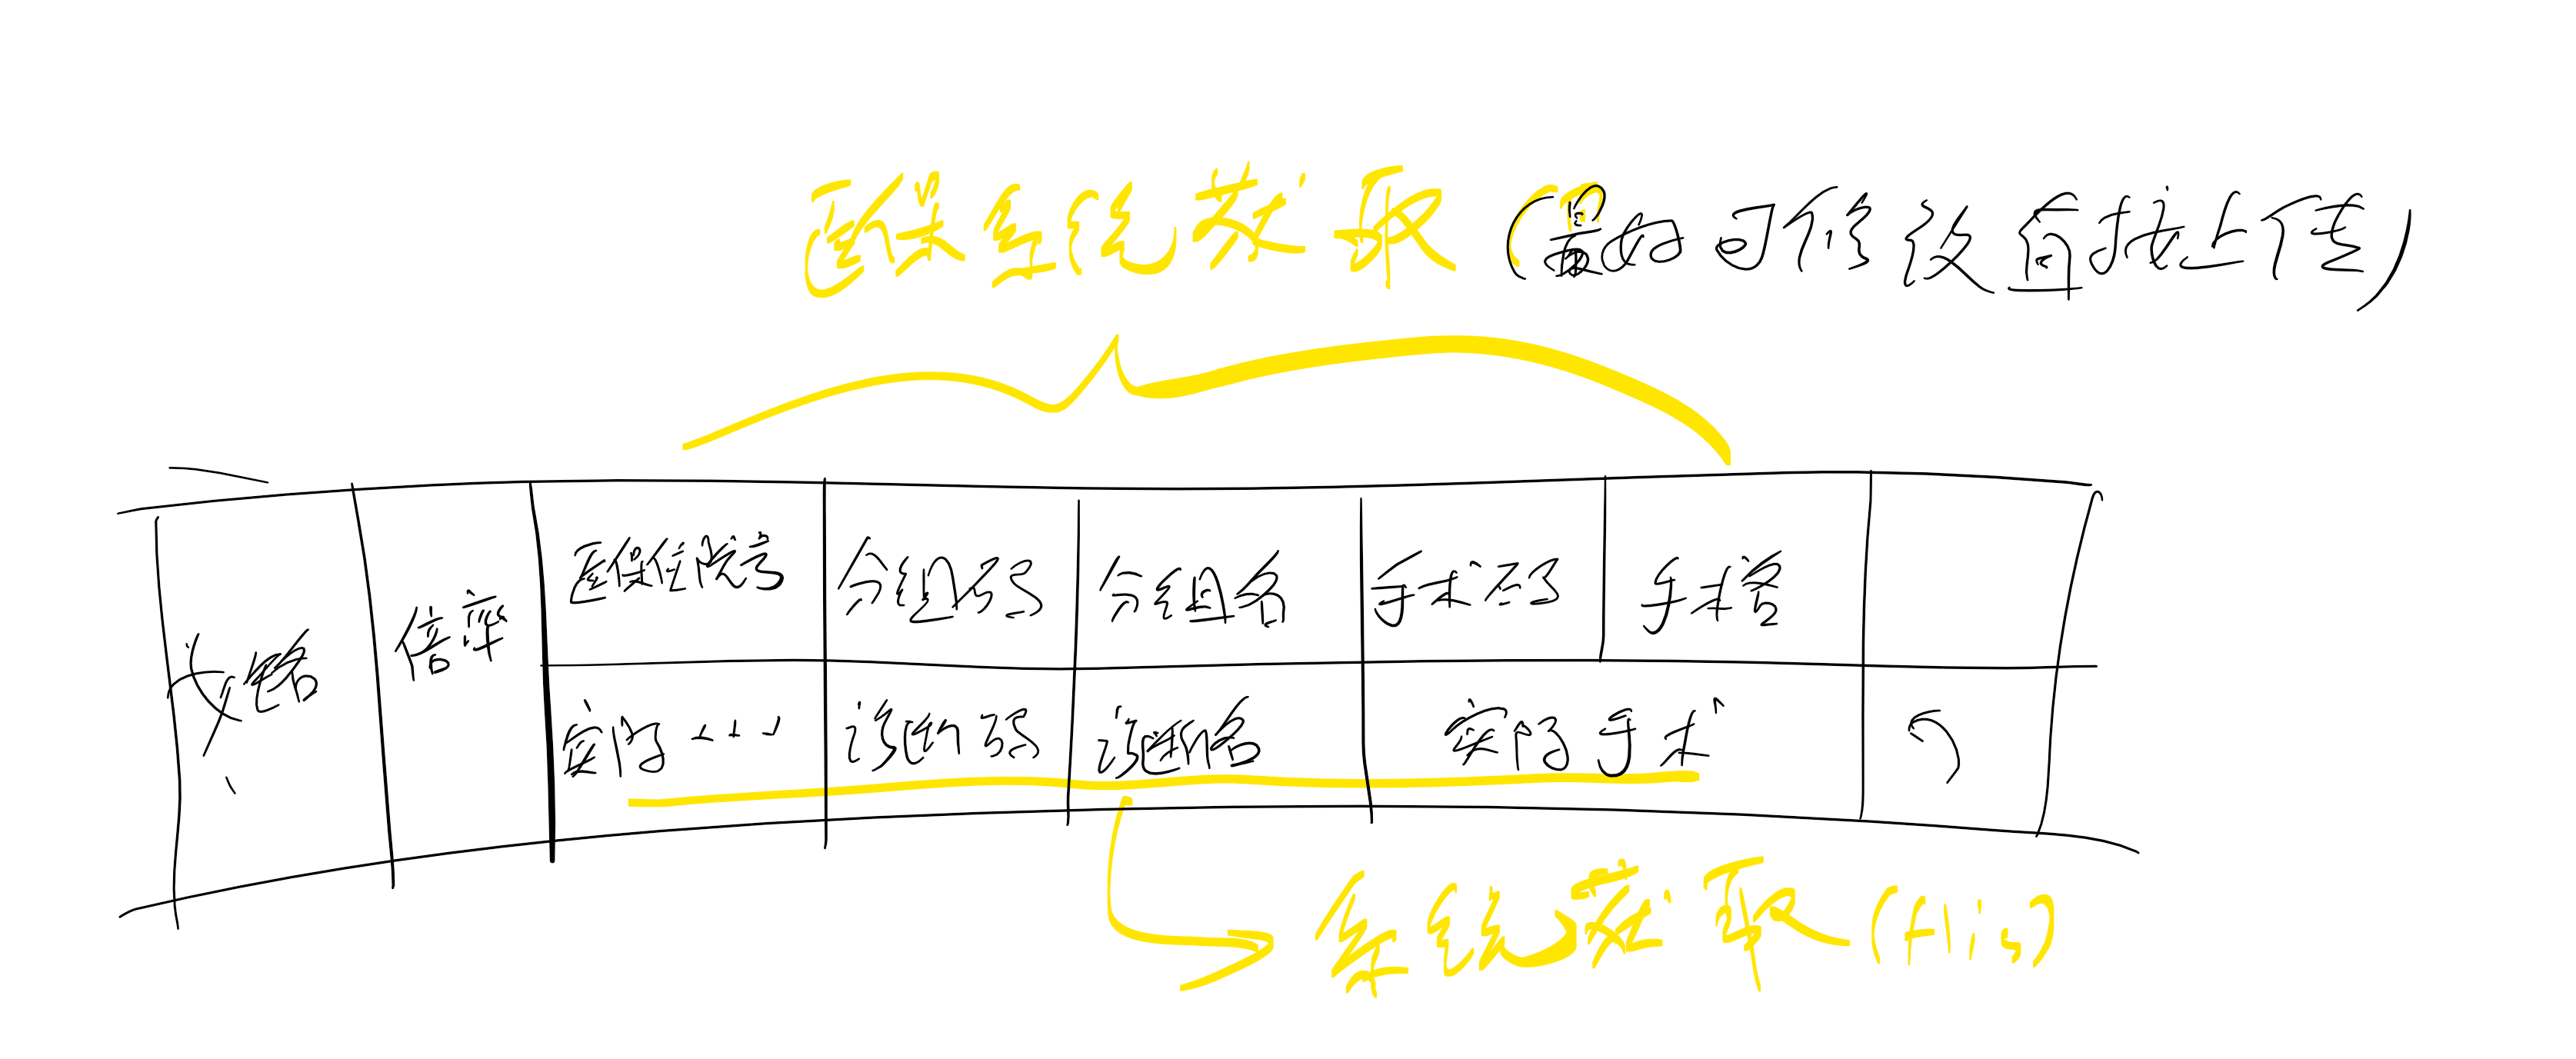 医保系统获取(最好可修改直接上传)
医保住院号 分组码 分组名 手术码 手术名
倍率
实际... 诊断码 诊断名 实际手术
系统获取(His)